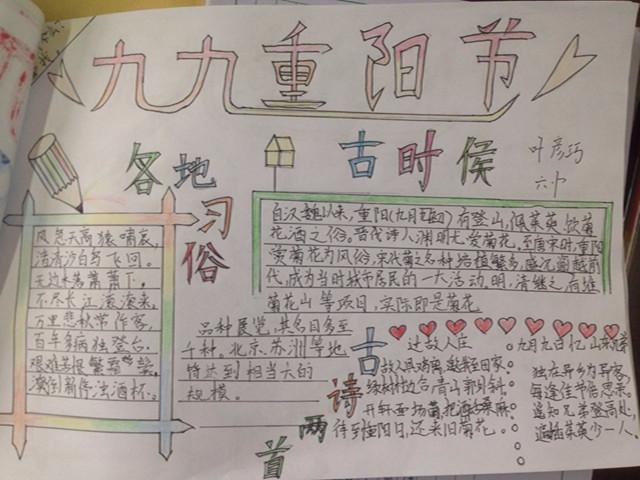 九九重阳节
各地习俗
古时候
叶彦巧
风急天高猿啸哀,
渚清沙白鸟飞回。
无边木落萧萧下,
不尽长江滚滚来。
万里悲秋常作客,
百年多病独登台。
艰难苦恨繁霜鬓,
潦倒新停浊酒杯。
以来,重阳(九月初)有登山,佩茱萸,饮菊
花酒之俗。晋代诗人渊明尤爱菊花,至唐宋时,重阳
赏菊花为风俗。宋 菊之名种培植繁多,盛况
代,成为当时城市居民的一大活动,明,清继之,有堆
菊花山等项目,实际即是菊花
品种展览,共名目多至
千种。北京、苏洲等地
特达到相当大的
规模。
古诗两首
过故人庄
故人具鸡 ,邀我至田家。
绿树村边合,青山郭外斜。
开轩面场菊,把酒话桑麻。
待到重阳日,还来旧菊花。
九月九日忆山东兄弟
独在异乡为异客,
每逢佳节倍思亲。
遥知兄弟登高处,
遍插茱萸少一人。